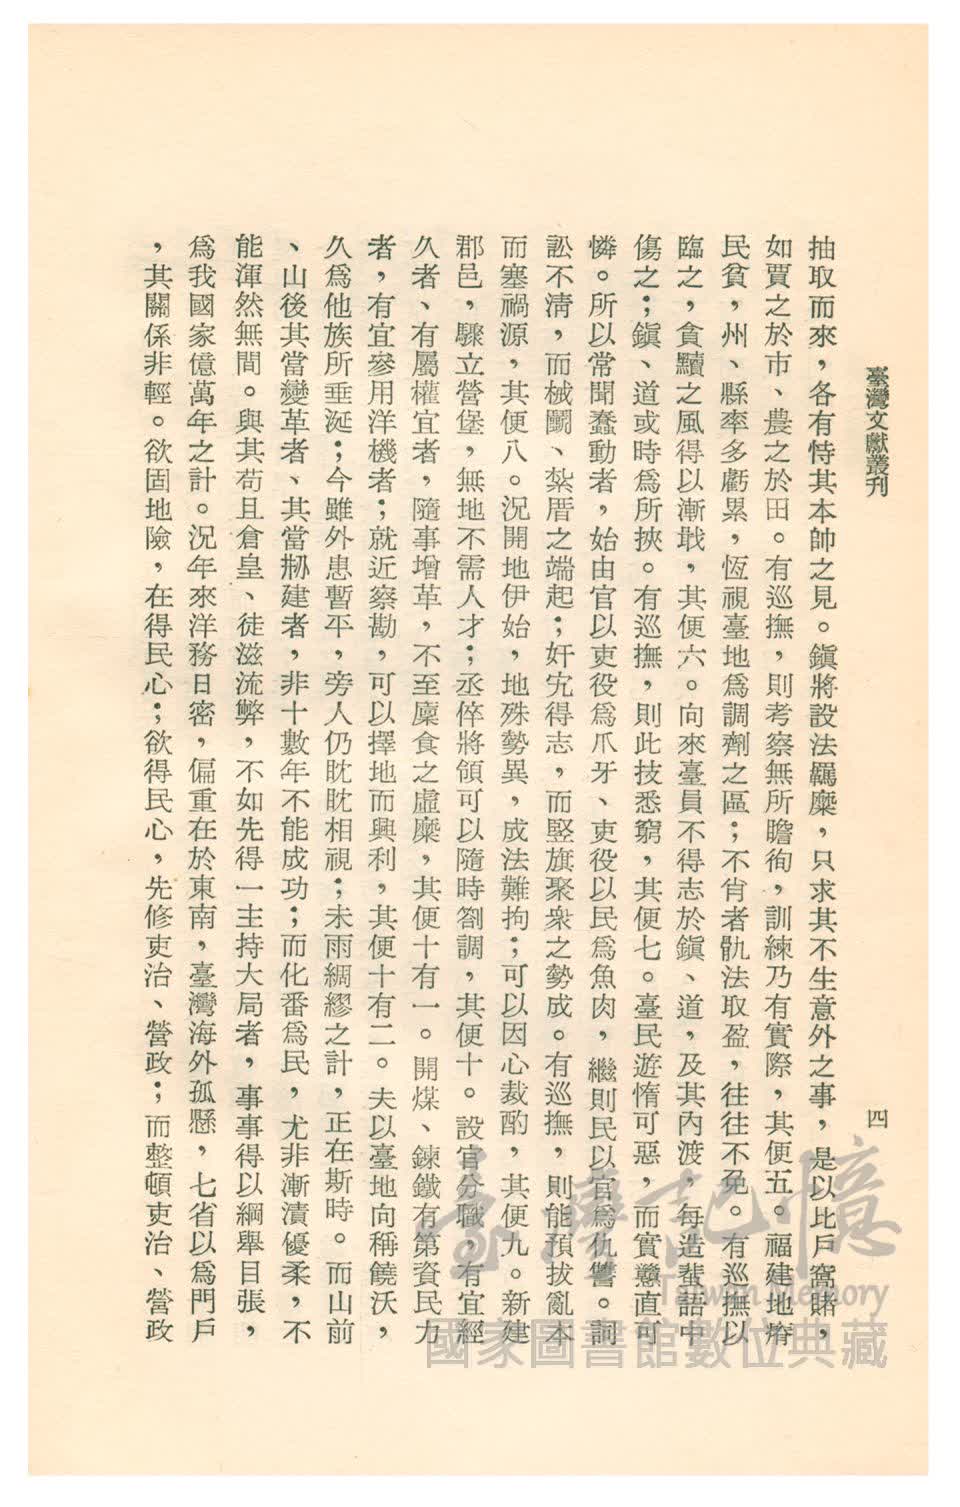 臺灣文獻叢刊
四
抽取而來，各有恃其本帥之見。鎭將設法羈縻，只求其不生意外之事，是以比戶窩賭，
如賈之於市、農之於田。有巡撫，則考察無所瞻徇，訓練乃有實際，其便五。福建地瘠
民貧，州、縣率多虧累，恆視臺地爲調劑之區；不肖者骫法取盈，往往不免。有巡撫以
臨之，貪黷之風得以漸戢，其便六。向來臺員不得志於鎭、道，及其內渡，每造蜚語中
傷之；鎭、道或時爲所挾。有巡撫，則此技悉窮，其便七。臺民遊惰可惡，而實戇直可
憐。所以常聞蠢動者，始由官以吏役爲爪牙、吏役以民爲魚肉，繼則民以官爲仇讐。詞
訟不淸，而械鬬、紮厝之端起；奸宄得志，而竪旗聚衆之勢成。有巡撫，則能預拔亂本
而塞禍源，其便八。況開地伊始，地殊勢異，成法難拘；可以因心裁酌，其便九。新建
郡邑，驟立營堡，無地不需人才；丞倅將領可以隨時劄調，其便十。設官分職，有宜經
久者、有屬權宜者，隨事增革，不至廩食之虛糜，其便十有一。開煤、鍊鐵有第資民力
者，有宜參用洋機者；就近察勘，可以擇地而興利，其便十有二。夫以臺地向稱饒沃，
久爲他族所垂涎；今雖外患暫平，旁人仍眈眈相視；未雨綢繆之計，正在斯時。而山前
、山後其當變革者、其當剏建者，非十數年不能成功；而化番爲民，尤非漸漬優柔，不
能渾然無間。與其苟且倉皇、徒滋流弊，不如先得一主持大局者，事事得以綱舉目張，
爲我國家億萬年之計。況年來洋務日密，偏重在於東南，臺灣海外孤懸，七省以爲門戶
，其關係非輕。欲固地險，在得民心；欲得民心，先修吏治、營政；而整頓吏治、營政
臺灣記憶
Taiwan Memory
國家圖書館數位典藏